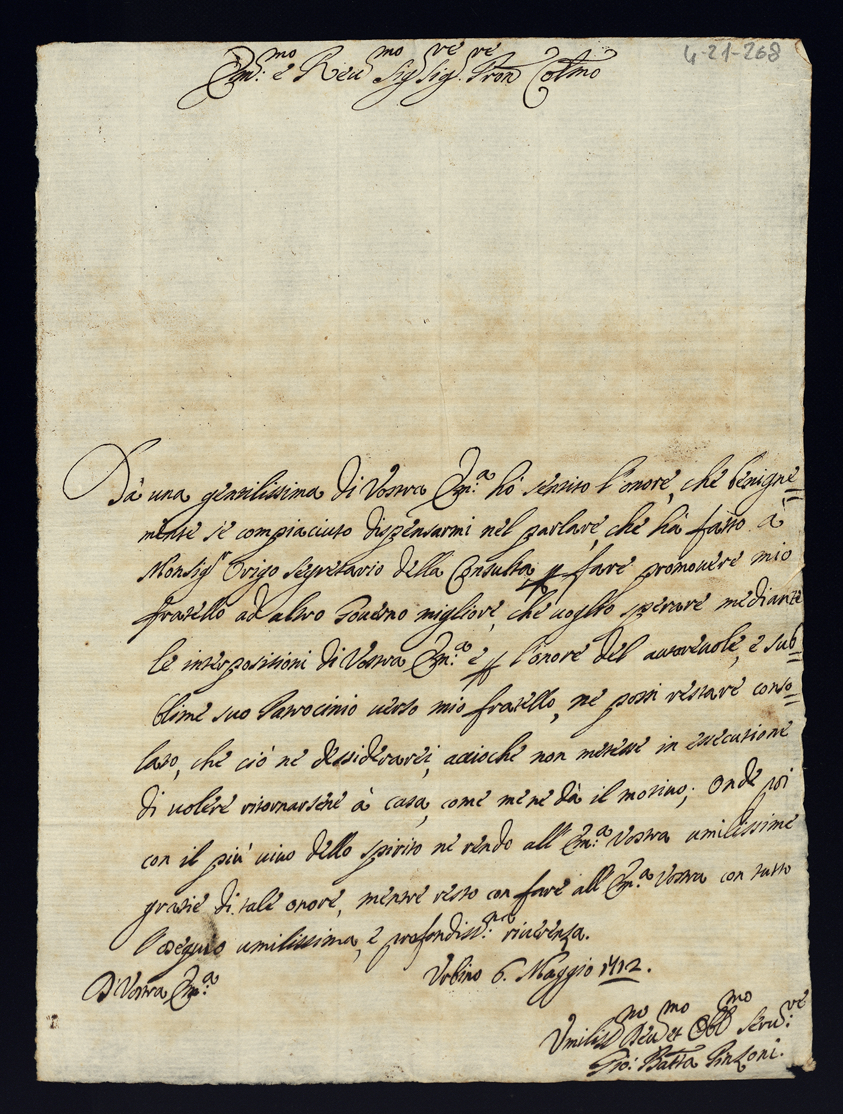 4-21-268
Em.mo e Reu.mo Sig.re Sig.re Pron Colmo
Da una gentilissima di Vostra Em.a hò sentito l'onore, che benigne=
mente se compiaciuto dispensarmi nel parlare, che hà fatto à
Monsig.r Origo Segretario della Consulta p fare promovere mio
fratello ad altro Governo migliore, che uoglio sperare mediante
le interpositioni di Vostra Em.a e p l'onore del autoreuole, e sub=
blime suo Patrocinio uerso mio fratello, ne possi restare conso=
lato, che ciò ne dessiderarei, acciochè non metesse in essecutione
di uolere ritornarsene à casa, come mene dà il motiuo; Onde poi
con il più uiuo dello spirito ne rendo all' Em.a Vostra umilissime
gratie di tale onore, mentre resto con fare all' Em.a Vostra con tutto
l'ossequio umilissima, e profondiss.ma riuerenza.
Di Vostra Em.a
Urbino 6. Maggio 1712.
Umiliss.mo Deu.mo et Obl.mo Seru.re
Gio: Batta Pinzoni.